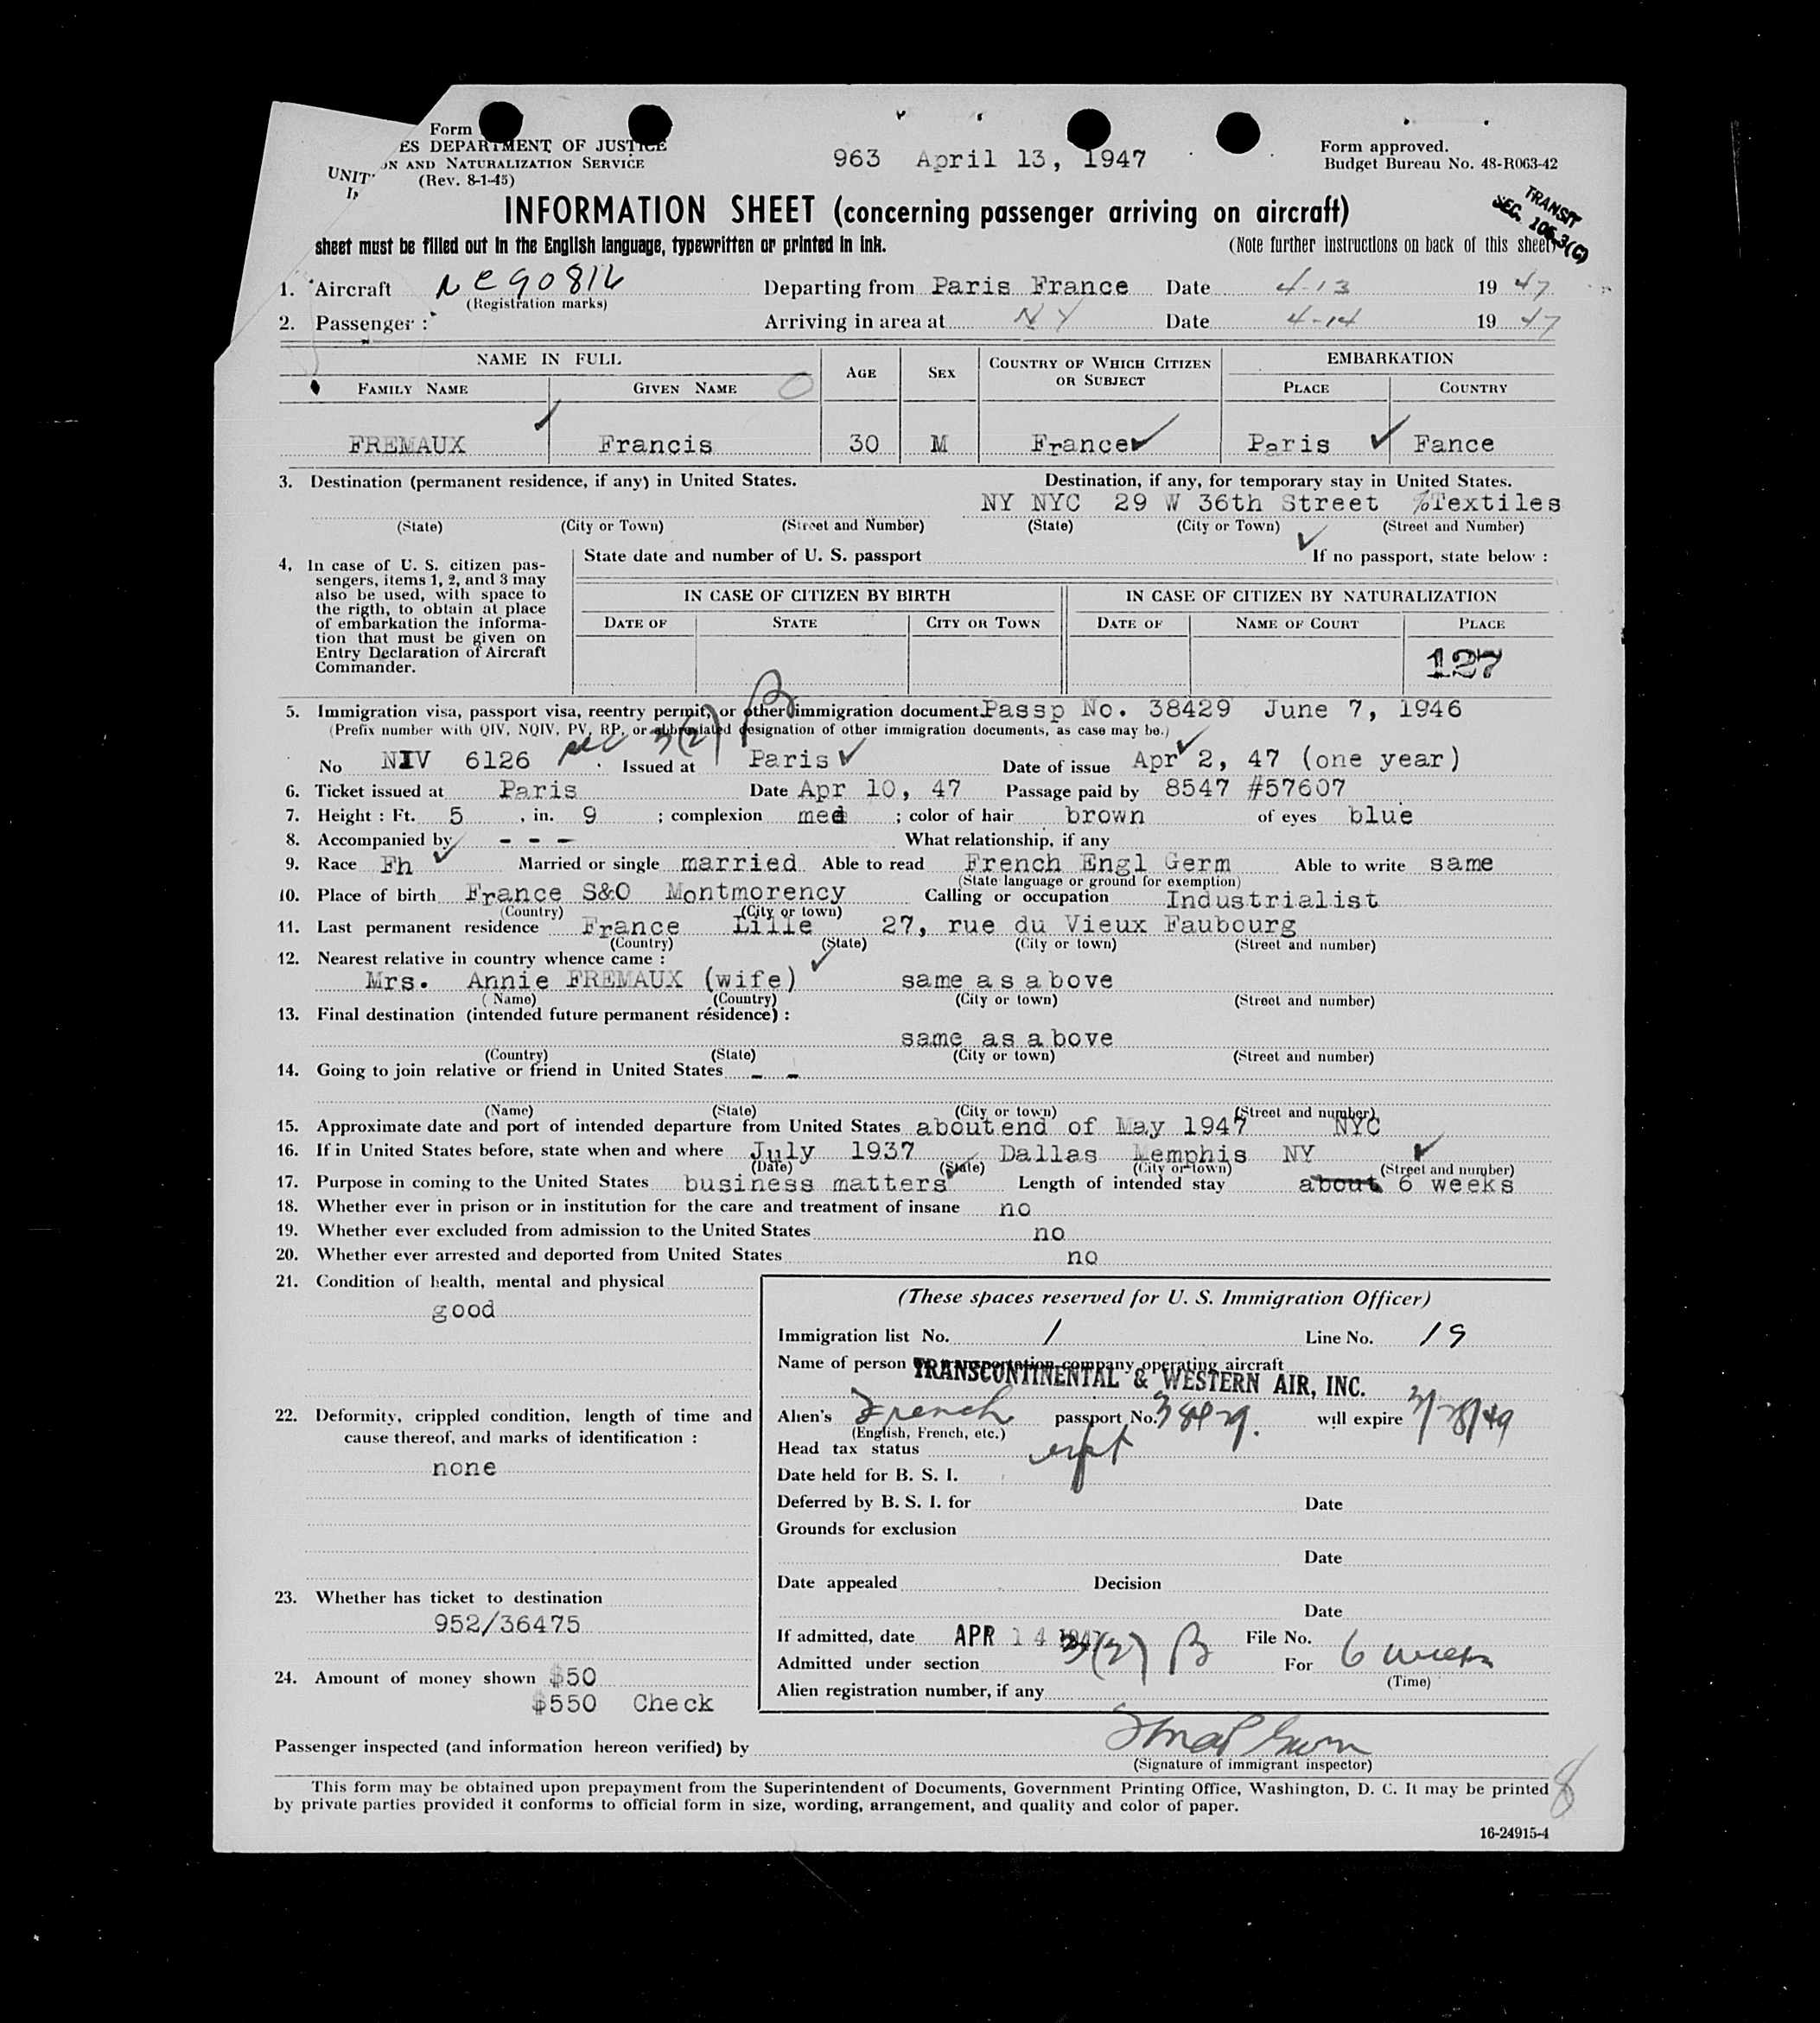 Form
ES DEPARTMENT OF JUSTICE
ON AND NATURALIZATION SERVICE
(Rev. 8-1-45)
963 April 13, 1947
Form approved.
Budget Bureau No. 48-R063-42
INFORMATION SHEET (concerning passenger arriving on aircraft)
TRANSIT
SEC. 105.3(C)
sheet must be filled out in the English language, typewritten or printed in ink.
(Note further instructions on back of this sheet)
1. Aircraft Departing from Paris France Date 4-13 19 47
(Registration marks)
2. Passenger : Arriving in area at NY Date 4-14 19 47
NAME IN FULL AGE SEX COUNTRY OF WHICH CITIZEN OR SUBJECT EMBARKATION
FAMILY NAME GIVEN NAME PLACE COUNTRY
FREMAUX Francis 30 M France Paris Fance
3. Destination (permanent residence, if any) in United States. Destination, if any, for temporary stay in United States.
NY NYC 29 W 36th Street %Textiles
(State) (City or Town) (Street and Number) (State) (City or Town) (Street and Number)
4. In case of U. S. citizen pas-
sengers, items 1, 2, and 3 may
also be used, with space to
the rigth, to obtain at place
of embarkation the informa-
tion that must be given on
Entry Declaration of Aircraft
Commander.
State date and number of U. S. passport If no passport, state below :
IN CASE OF CITIZEN BY BIRTH IN CASE OF CITIZEN BY NATURALIZATION
DATE OF STATE CITY OR TOWN DATE OF NAME OF COURT PLACE
127
5. Immigration visa, passport visa, reentry permit, or other immigration document. Passp No. 38429 June 7, 1946
(Prefix number with QIV, NQIV, PV, RP, or abbreviated designation of other immigration documents, as case may be.)
sec 3(2) B
No NIV 6126 Issued at Paris Date of issue Apr 2, 47 (one year)
6. Ticket issued at Paris Date Apr 10, 47 Passage paid by 8547 #57607
7. Height : Ft. 5 , in. 9 ; complexion med ; color of hair brown of eyes blue
8. Accompanied by - - - What relationship, if any
9. Race Fh Married or single married Able to read French Engl Germ Able to write same
(State language or ground for exemption)
10. Place of birth France S&O Montmorency Calling or occupation Industrialist
(Country) (City or town)
11. Last permanent residence France Lille 27, rue du Vieux Faubourg
(Country) (State) (City or town) (Street and number)
12. Nearest relative in country whence came :
Mrs. Annie FREMAUX (wife) same as above
(Name) (Country) (City or town) (Street and number)
13. Final destination (intended future permanent résidence) :
same as above
(Country) (State) (City or town) (Street and number)
14. Going to join relative or friend in United States - -
(Name) (State) (City or town) (Street and number)
15. Approximate date and port of intended departure from United States about end of May 1947 NYC
16. If in United States before, state when and where July 1937 Dallas Memphis NY
(Date) (State) (City or town) (Street and number)
17. Purpose in coming to the United States business matters Length of intended stay about 6 weeks
18. Whether ever in prison or in institution for the care and treatment of insane no
19. Whether ever excluded from admission to the United States no
20. Whether ever arrested and deported from United States no
21. Condition of health, mental and physical
good
22. Deformity, crippled condition, length of time and
cause thereof, and marks of identification :
none
23. Whether has ticket to destination
952/36475
24. Amount of money shown $50
$550 Check
(These spaces reserved for U. S. Immigration Officer)
Immigration list No. 1 Line No. 19
Name of person or transportation company operating aircraft
TRANSCONTINENTAL & WESTERN AIR, INC.
Alien's French passport No. 38429. will expire
(English, French, etc.)
Head tax status
Date held for B. S. I.
Deferred by B. S. I. for Date
Grounds for exclusion
Date
Date appealed Decision
Date
If admitted, date APR 14 1947 File No.
Admitted under section 3(2) B For 6 weeks
(Time)
Alien registration number, if any
Passenger inspected (and information hereon verified) by
(Signature of immigrant inspector)
This form may be obtained upon prepayment from the Superintendent of Documents, Government Printing Office, Washington, D. C. It may be printed
by private parties provided it conforms to official form in size, wording, arrangement, and quality and color of paper.
8
16-24915-4